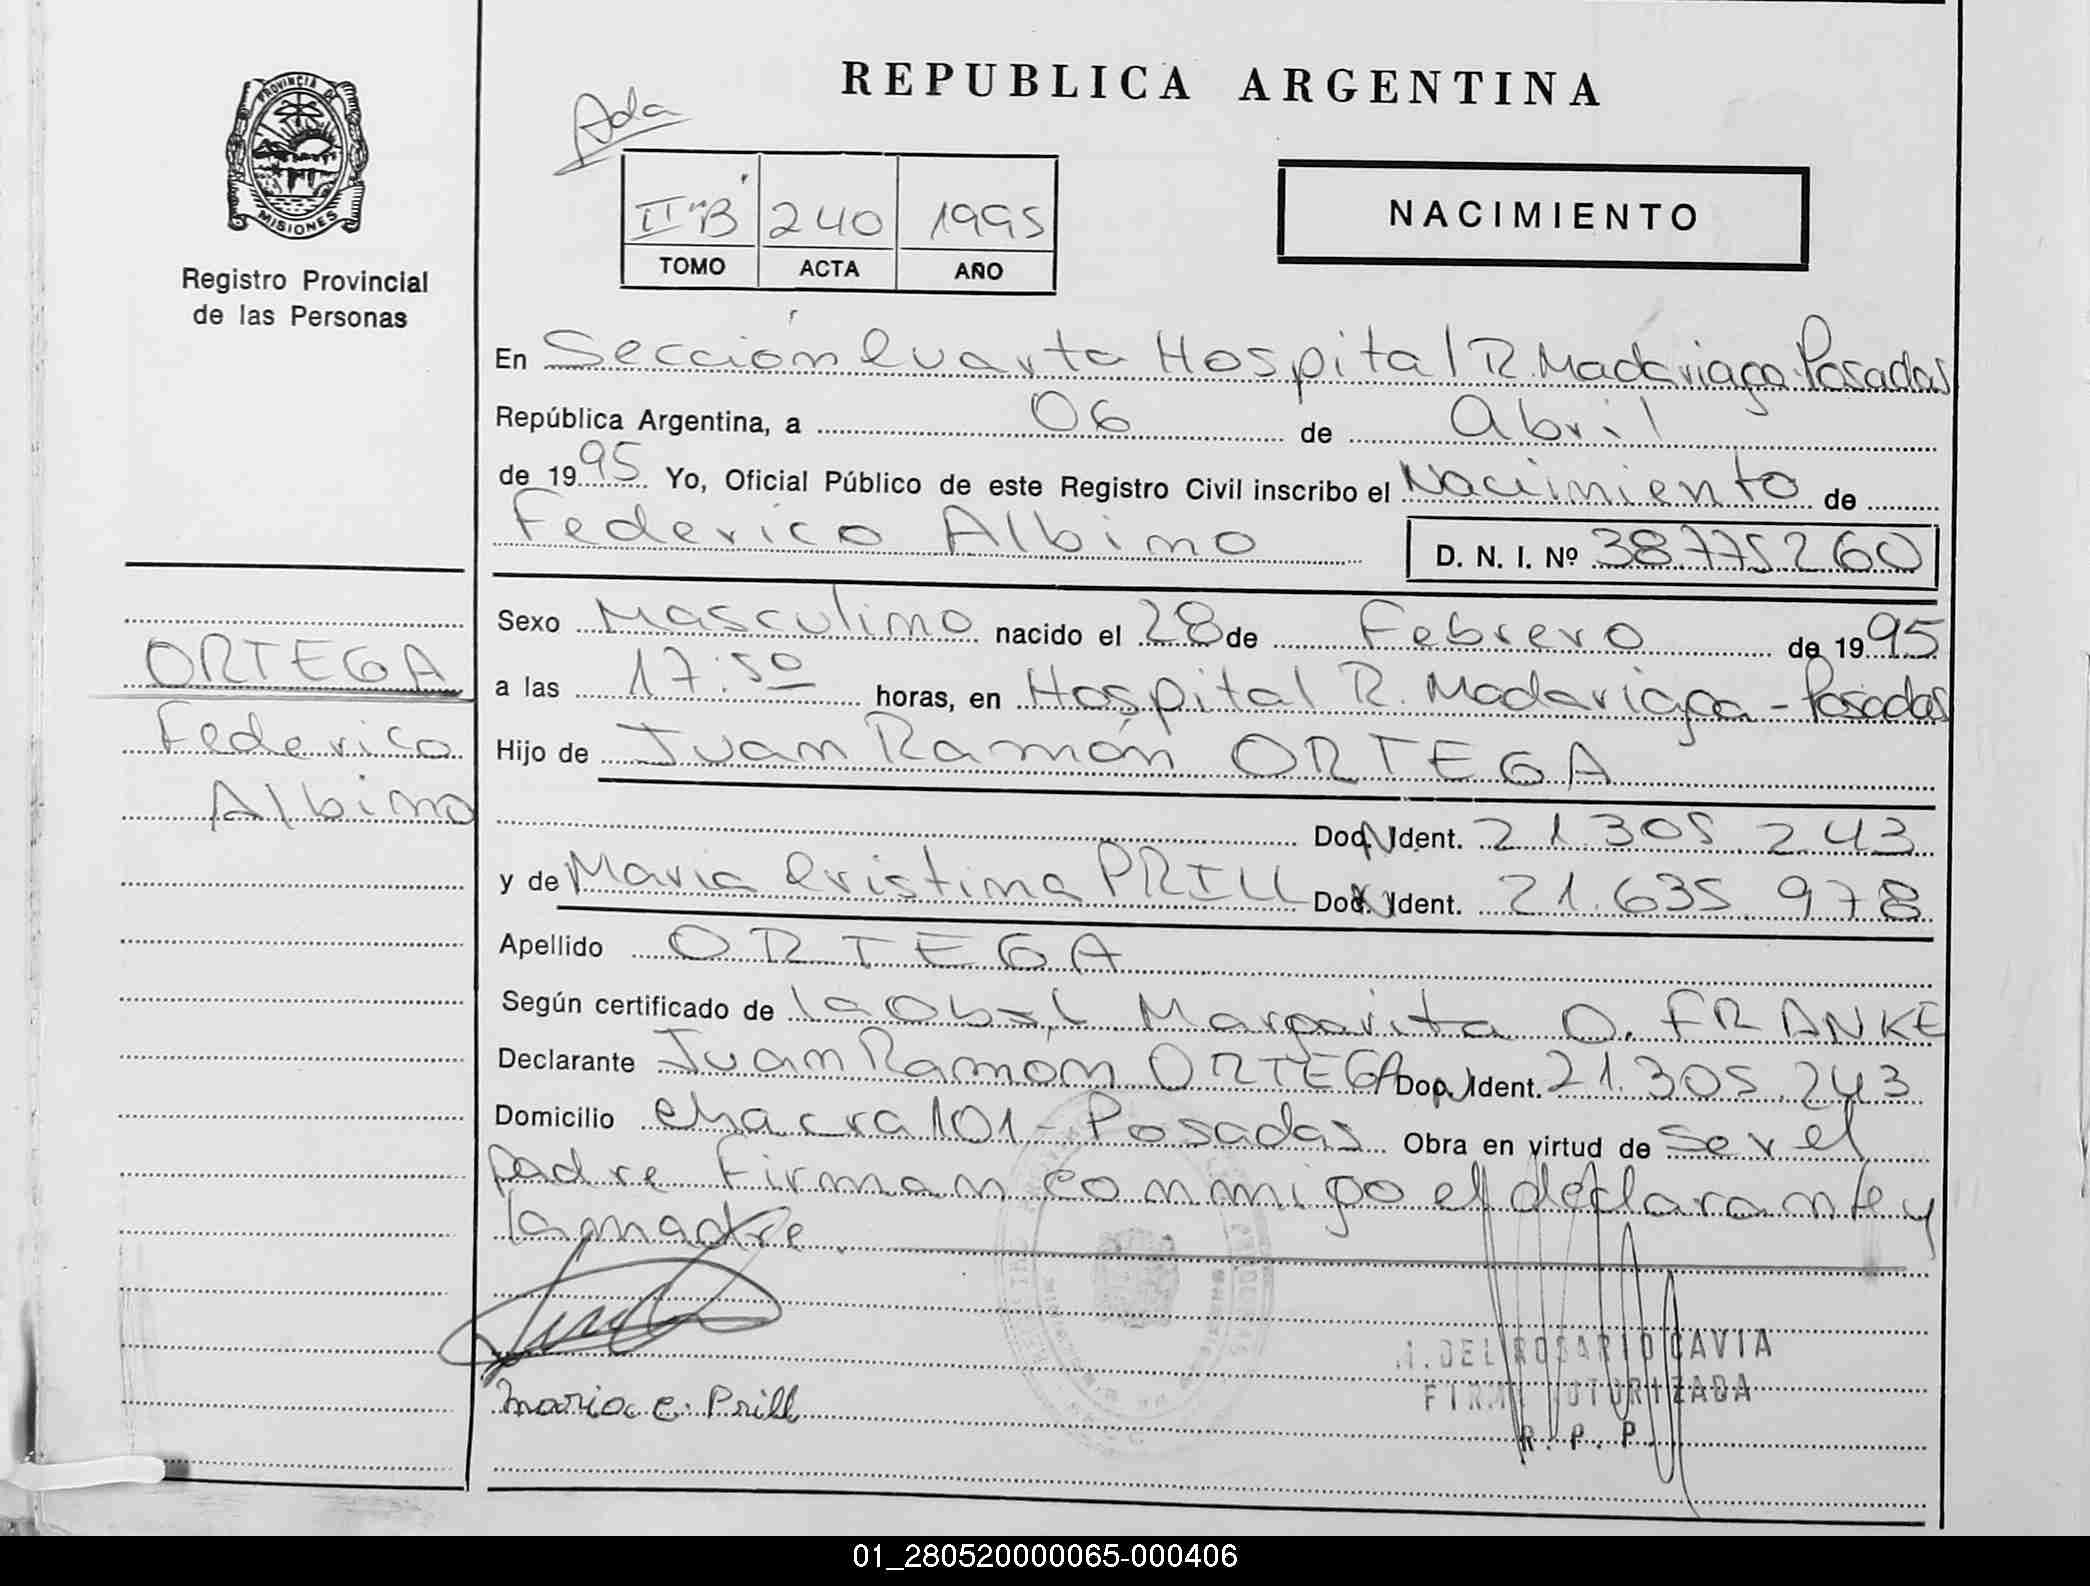 REPUBLICA ARGENTINA
Ada
PROVINCIA DE
MISIONES
Registro Provincial
de las Personas
II "B" 240 1995
TOMO ACTA AÑO
NACIMIENTO
En Sección Cuarta Hospital R. Madariaga-Posadas
República Argentina, a 06 de Abril
de 1995 Yo, Oficial Público de este Registro Civil inscribo el Nacimiento de
Federico Albino D. N. I. Nº 38.775.260
Sexo Masculino nacido el 28 de Febrero de 1995
a las 17:50 horas, en Hospital R. Madariaga - Posadas
Hijo de Juan Ramón ORTEGA
Doc. Ident. 21.305.243
y de Maria Cristina PRILL Doc. Ident. 21.635.978
Apellido ORTEGA
Según certificado de la Obst. Margarita O. FRANKE
Declarante Juan Ramón ORTEGA Doc. Ident. 21.305.243
Domicilio chacra 101 - Posadas Obra en virtud de ser el
padre Firman conmigo el declarante y
la madre.
ORTEGA
Federico
Albino
Maria C. Prill
M. DEL ROSARIO CAVIA
FIRMA AUTORIZADA
R. P. P.
01_280520000065-000406